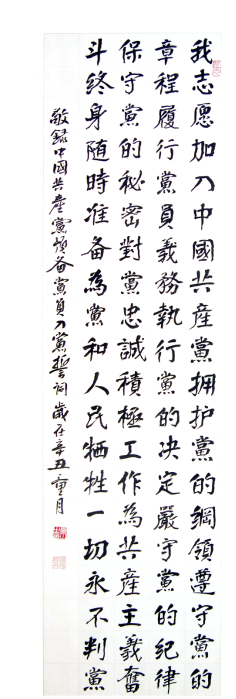 我志愿加入中國共産黨拥护黨的綱領遵守黨的
章程履行黨員義務執行黨的决定嚴守黨的纪律
保守黨的秘密對黨忠誠積極工作為共産主義奮
斗终身随時准备為黨和人民牺牲一切永不判黨
敬録中國共產黨預备黨員入黨誓詞歲在辛丑月